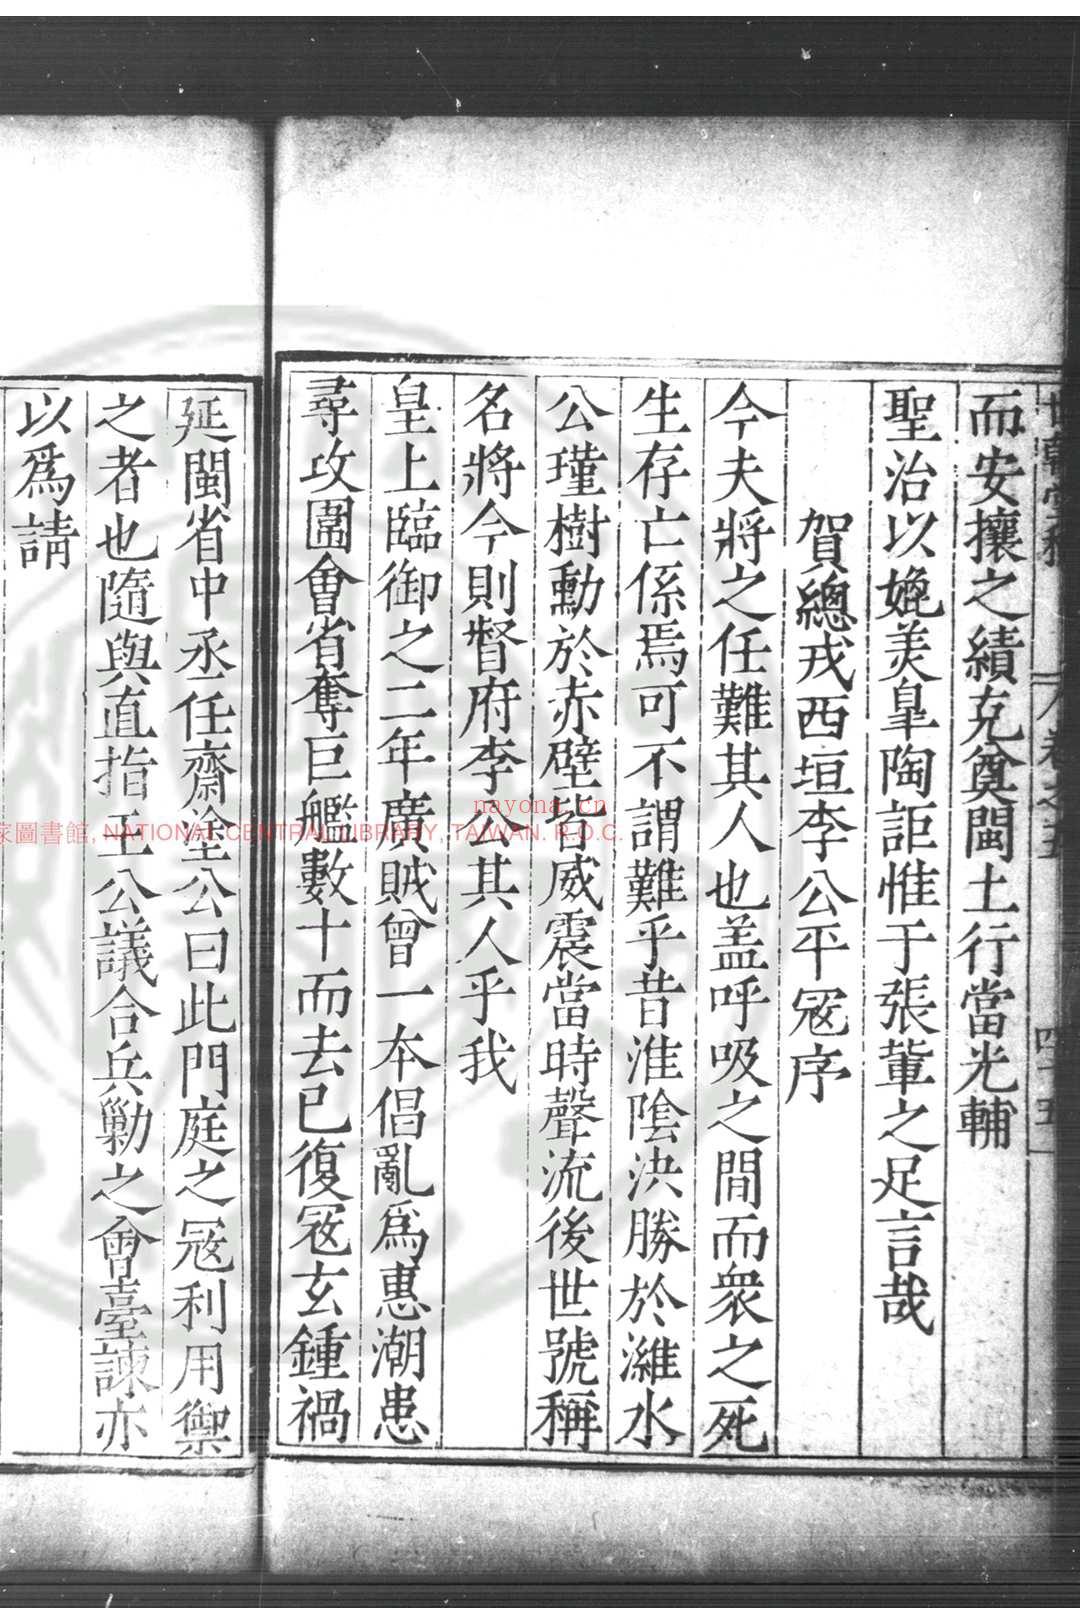 而安攘之績克奠閩土行當光輔
聖治以媲美臯陶詎惟于張輩之足言哉
賀總戎西垣李公平宼序
今夫將之任難其人也盖呼吸之間而衆之死
生存亡係焉可不謂難乎昔淮陰決勝於濰水
公瑾樹勳於赤壁皆威震當時聲流後世號稱
名將今則督府李公其人乎我
皇上臨御之二年廣賊曾一本倡亂爲惠潮患
尋攻圍會省奪巨艦數十而去已復宼玄鍾禍
延閩省中丞任齋塗公曰此門庭之宼利用禦
之者也隨與直指王公議合兵勦之會臺諫亦
以爲請
卷之五
四十五
國家圖書館, NATIONAL CENTRAL LIBRARY, TAIWAN. R.O.C.
nayona.cn